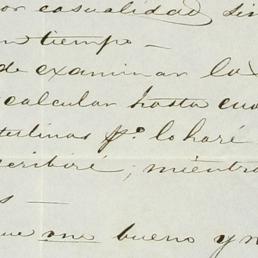 or casualidad sin
n tiempo —
de examinar la
calcular hasta cua
tulinas po. lo haré
cribiré; mientra
s —
ue me bueno y n